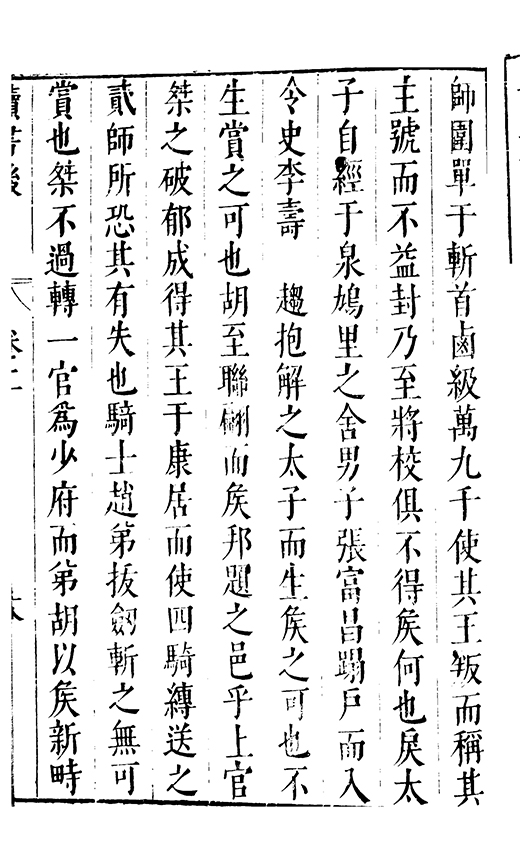 師圍單于斬首鹵級萬九千使其王叛而稱其
主號而不益封乃至將校俱不得矦何也戾太
子自經于泉鳩里之舍男子張富昌蹋戶而入
令史李壽　趨抱解之太子而生矦之可也不
生賞之可也胡至聯翩而矦邦題之邑乎上官
桀之破郁成得其王于康居而使四騎縛送之
貳師所恐其有失也騎士趙弟拔劒斬之無可
賞也桀不過轉一官爲少府而弟胡以矦新畤
讀書後
卷二